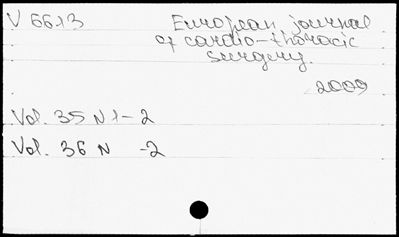 V 6613
European journal
of cardio-thoracic
surgery.
2009
Vol. 35 N 1-2
Vol. 36 N -2